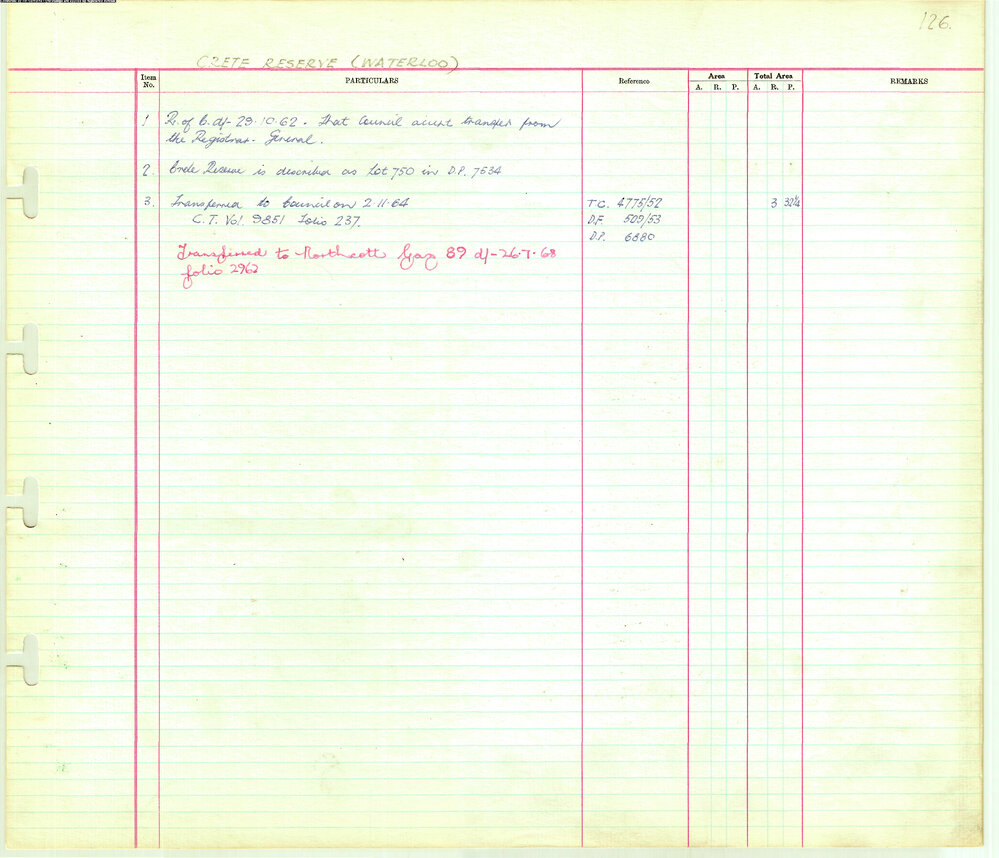 126.
CRETE RESERVE (WATERLOO)
Item No. PARTICULARS Reference Area Total Area REMARKS
A. R. P. A. R. P.
1 R. of C. d/- 29.10.62. that Council accept transfer from
the Registrar-General.
2. Crete Reserve is described as Lot 750 in D.P. 7534
3. Transferred to Council on 2-11-64 T.C. 4775/52 3 32¼
C.T. Vol. 9851 Folio 237. D.F. 509/53
D.P. 6880
Transferred to Northcott Gaz 89 d/- 26.7.68
folio 2962